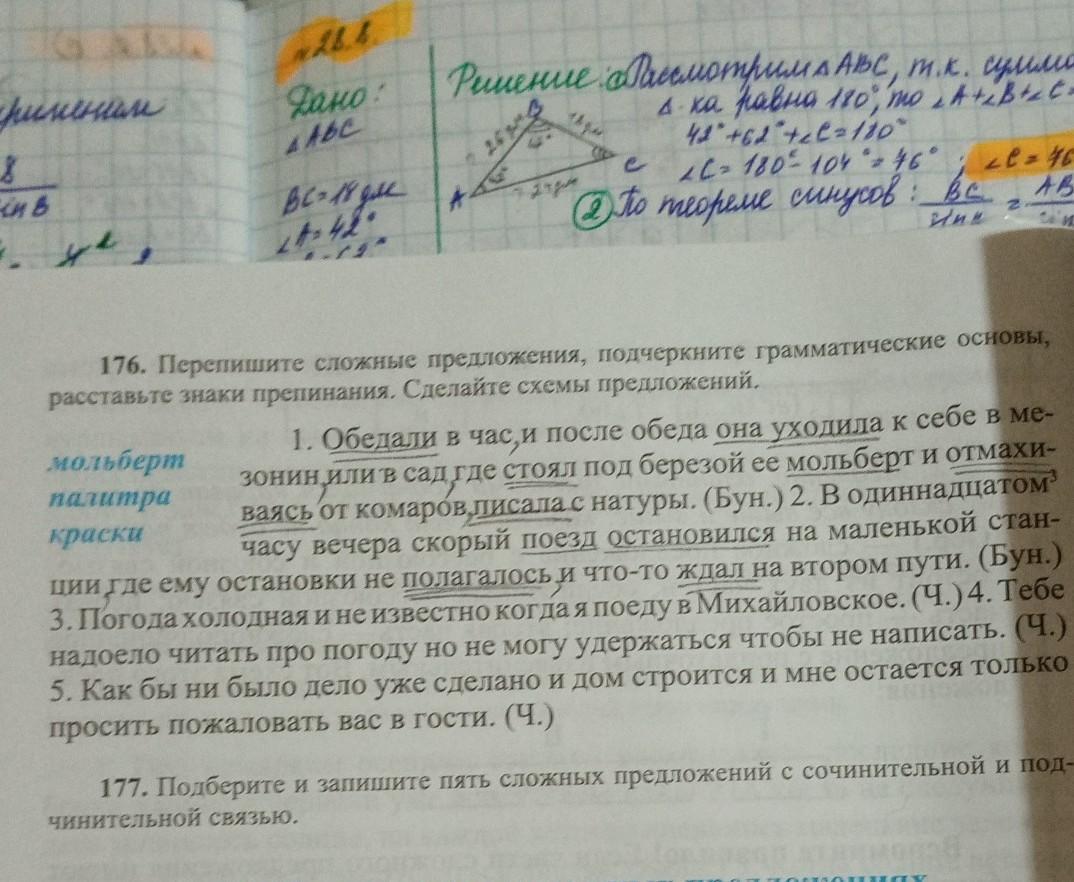 №28.8.
Дано:
△ABC
BC=18дм
∠A=42°
8
sin B
Решение: ① Рассмотрим △ABC, т.к. сумма
△-ка равна 180°, то ∠A+∠B+∠C=
42°+62°+∠C=180°
∠C=180°-104°=76° ; ∠C=76
② По теореме синусов: BC = AB
B
A
C
176. Перепишите сложные предложения, подчеркните грамматические основы,
расставьте знаки препинания. Сделайте схемы предложений.
мольберт
палитра
краски
1. Обедали в час, и после обеда она уходила к себе в ме-
зонин, или в сад, где стоял под березой ее мольберт и отмахи-
ваясь от комаров, писала с натуры. (Бун.) 2. В одиннадцатом
часу вечера скорый поезд остановился на маленькой стан-
ции, где ему остановки не полагалось, и что-то ждал на втором пути. (Бун.)
3. Погода холодная и не известно когда я поеду в Михайловское. (Ч.) 4. Тебе
надоело читать про погоду но не могу удержаться чтобы не написать. (Ч.)
5. Как бы ни было дело уже сделано и дом строится и мне остается только
просить пожаловать вас в гости. (Ч.)
177. Подберите и запишите пять сложных предложений с сочинительной и под-
чинительной связью.